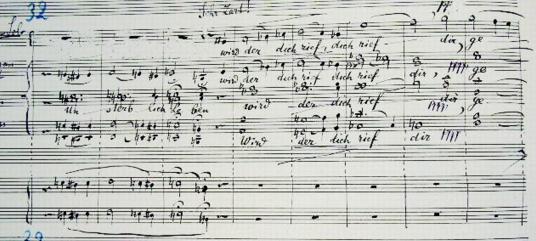 32
Sehr zart!
pp
Solo
wird der dich rief, dich rief dir, ge
wird der dich rief dich rief dir, pppp ge
Un sterb lich le ben wird der dich rief dir, pppp ge
wird der dich rief dir pppp
3
29